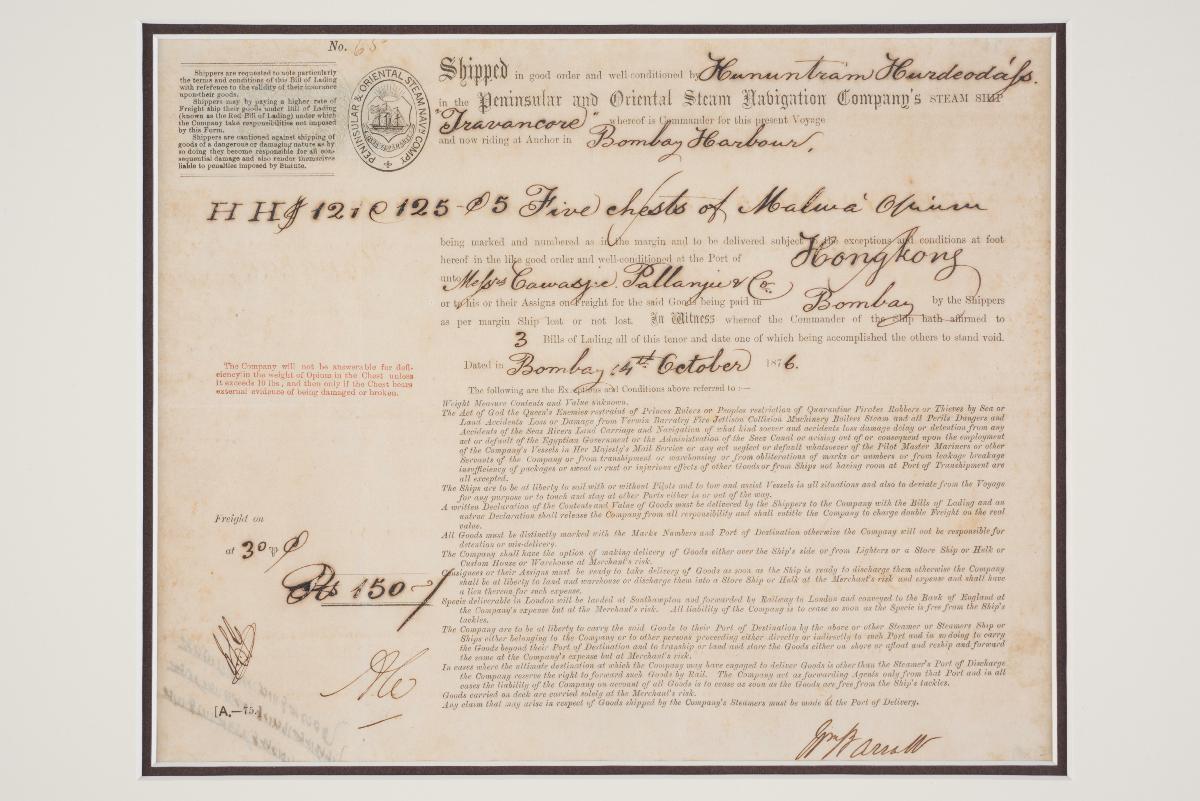 No. 65
Shippers are requested to note particularly
the terms and conditions of this Bill of Lading
with reference to the validity of their insurance
upon their goods.
Shippers may by paying a higher rate of
Freight ship their goods under Bill of Lading
(known as the Red Bill of Lading) under which
the Company take responsibilities not imposed
by this Form.
Shippers are cautioned against shipping of
goods of a dangerous or damaging nature as by
so doing they become responsible for all con-
sequential damage and also render themselves
liable to penalties imposed by Statute.
PENINSULAR & ORIENTAL STEAM NAVN. COMPY.
Shipped in good order and well conditioned by Hununtram Hurdeodáss.
in the Peninsular and Oriental Steam Navigation Company's STEAM SHIP
"Travancore" whereof is Commander for this present Voyage
and now riding at Anchor in Bombay Harbour,
HHJ 121 @ 125 - 5 Five chests of Malwá Opium
being marked and numbered as in the margin and to be delivered subject to the exceptions and conditions at foot
hereof in the like good order and well-conditioned at the Port of Hongkong
unto Messrs Cawasjee Pallanjee & Co.
or to his or their Assigns on Freight for the said Goods being paid in Bombay by the Shippers
as per margin Ship lost or not lost. In Witness whereof the Commander of the Ship hath affirmed to
3 Bills of Lading all of this tenor and date one of which being accomplished the others to stand void.
Dated in Bombay 14th October 1876.
The Company will not be answerable for defi-
ciency in the weight of Opium in the Chest unless
it exceeds 10 lbs., and then only if the Chest bears
external evidence of being damaged or broken.
The following are the Exceptions and Conditions above referred to :—
Weight Measure Contents and Value unknown.
The Act of God the Queen's Enemies restraint of Princes Rulers or Peoples restriction of Quarantine Pirates Robbers or Thieves by Sea or
Land Accidents Loss or Damage from Vermin Barratry Fire Jettison Collision Machinery Boilers Steam and all Perils Dangers and
Accidents of the Seas Rivers Land Carriage and Navigation of what kind soever and accidents loss damage delay or detention from any
act or default of the Egyptian Government or the Administration of the Suez Canal or arising out of or consequent upon the employment
of the Company's Vessels in Her Majesty's Mail Service or any act neglect or default whatsoever of the Pilot Master Mariners or other
Servants of the Company or from transhipment or warehousing or from obliterations of marks or numbers or from leakage breakage
insufficiency of packages or sweat or rust or injurious effects of other Goods or from Ships not having room at Port of Transhipment are
all excepted.
The Ships are to be at liberty to sail with or without Pilots and to tow and assist Vessels in all situations and also to deviate from the Voyage
for any purpose or to touch and stay at other Ports either in or out of the way.
A written Declaration of the Contents and Value of Goods must be delivered by the Shippers to the Company with the Bills of Lading and an
untrue Declaration shall release the Company from all responsibility and shall entitle the Company to charge double Freight on the real
value.
All Goods must be distinctly marked with the Marks Numbers and Port of Destination otherwise the Company will not be responsible for
detention or mis-delivery.
The Company shall have the option of making delivery of Goods either over the Ship's side or from Lighters or a Store Ship or Hulk or
Custom House or Warehouse at Merchant's risk.
Consignees or their Assigns must be ready to take delivery of Goods as soon as the Ship is ready to discharge them otherwise the Company
shall be at liberty to land and warehouse or discharge them into a Store Ship or Hulk at the Merchant's risk and expense and shall have
a lien thereon for such expense.
Specie deliverable in London will be landed at Southampton and forwarded by Railway to London and conveyed to the Bank of England at
the Company's expense but at the Merchant's risk. All liability of the Company is to cease so soon as the Specie is free from the Ship's
tackles.
The Company are to be at liberty to carry the said Goods to their Port of Destination by the above or other Steamer or Steamers Ship or
Ships either belonging to the Company or to other persons proceeding either directly or indirectly to such Port and in so doing to carry
the Goods beyond their Port of Destination and to tranship or land and store the Goods either on shore or afloat and reship and forward
the same at the Company's expense but at Merchant's risk.
In cases where the ultimate destination at which the Company may have engaged to deliver Goods is other than the Steamer's Port of Discharge
the Company reserve the right to forward such Goods by Rail. The Company act as forwarding Agents only from that Port and in all
cases the liability of the Company on account of all Goods is to cease as soon as the Goods are free from the Ship's tackles.
Goods carried on deck are carried solely at the Merchant's risk.
Any claim that may arise in respect of Goods shipped by the Company's Steamers must be made at the Port of Delivery.
Freight on
at 30 p
Rs 150-/
[A.—75.]
Wm Barratt